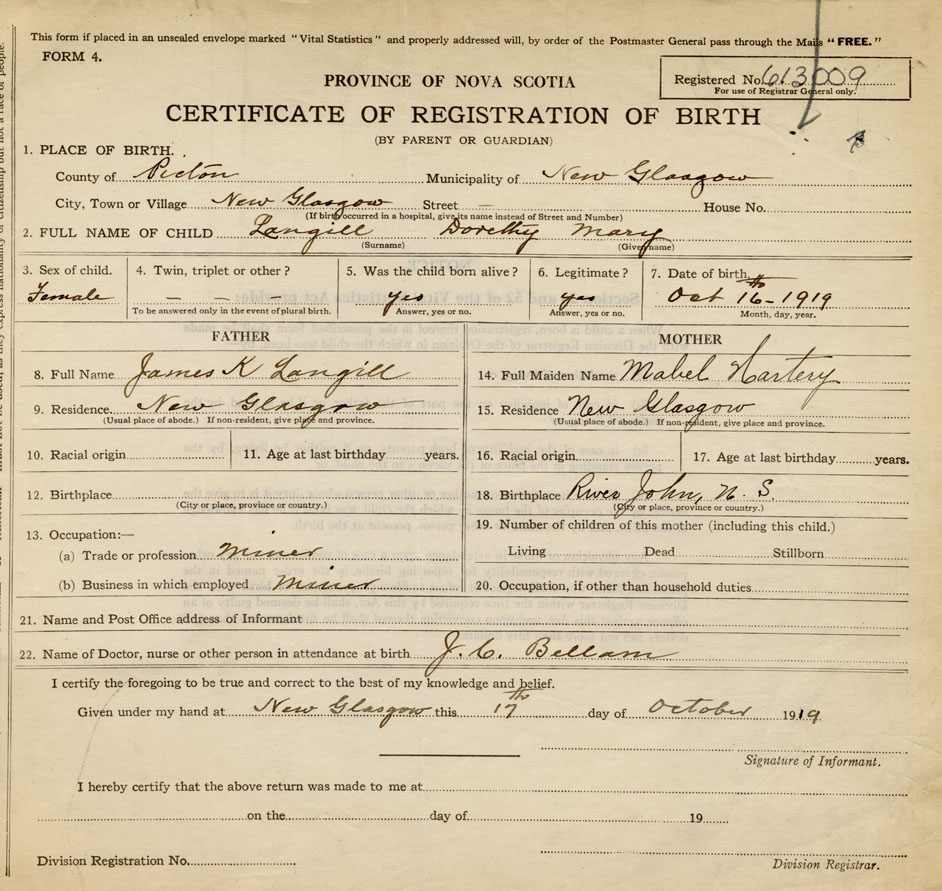 This form if placed in an unsealed envelope marked "Vital Statistics" and properly addressed will, by order of the Postmaster General pass through the Mails "FREE."
FORM 4.
PROVINCE OF NOVA SCOTIA
Registered No. 613009
For use of Registrar General only.
CERTIFICATE OF REGISTRATION OF BIRTH
(BY PARENT OR GUARDIAN)
1. PLACE OF BIRTH.
County of Pictou Municipality of New Glasgow
City, Town or Village New Glasgow Street — House No.
(If birth occurred in a hospital, give its name instead of Street and Number)
2. FULL NAME OF CHILD Langill Dorethy Mary
(Surname) (Given name)
3. Sex of child. 4. Twin, triplet or other? 5. Was the child born alive? 6. Legitimate? 7. Date of birth.
Female — — — — yes yes Oct 16th - 1919
To be answered only in the event of plural birth. Answer, yes or no. Answer, yes or no. Month, day, year.
FATHER MOTHER
8. Full Name James K Langill 14. Full Maiden Name Mabel Hartery
9. Residence. New Glasgow 15. Residence New Glasgow
(Usual place of abode.) If non-resident, give place and province. (Usual place of abode.) If non-resident, give place and province.
10. Racial origin 11. Age at last birthday years. 16. Racial origin 17. Age at last birthday years.
12. Birthplace 18. Birthplace River John, N. S.
(City or place, province or country.) (City or place, province or country.)
13. Occupation:— 19. Number of children of this mother (including this child.)
(a) Trade or profession Miner Living Dead Stillborn
(b) Business in which employed Miner 20. Occupation, if other than household duties
21. Name and Post Office address of Informant
22. Name of Doctor, nurse or other person in attendance at birth J. C. Bellam
I certify the foregoing to be true and correct to the best of my knowledge and belief.
Given under my hand at New Glasgow this 17th day of October 1919.
Signature of Informant.
I hereby certify that the above return was made to me at
on the day of 19
Division Registration No.
Division Registrar.